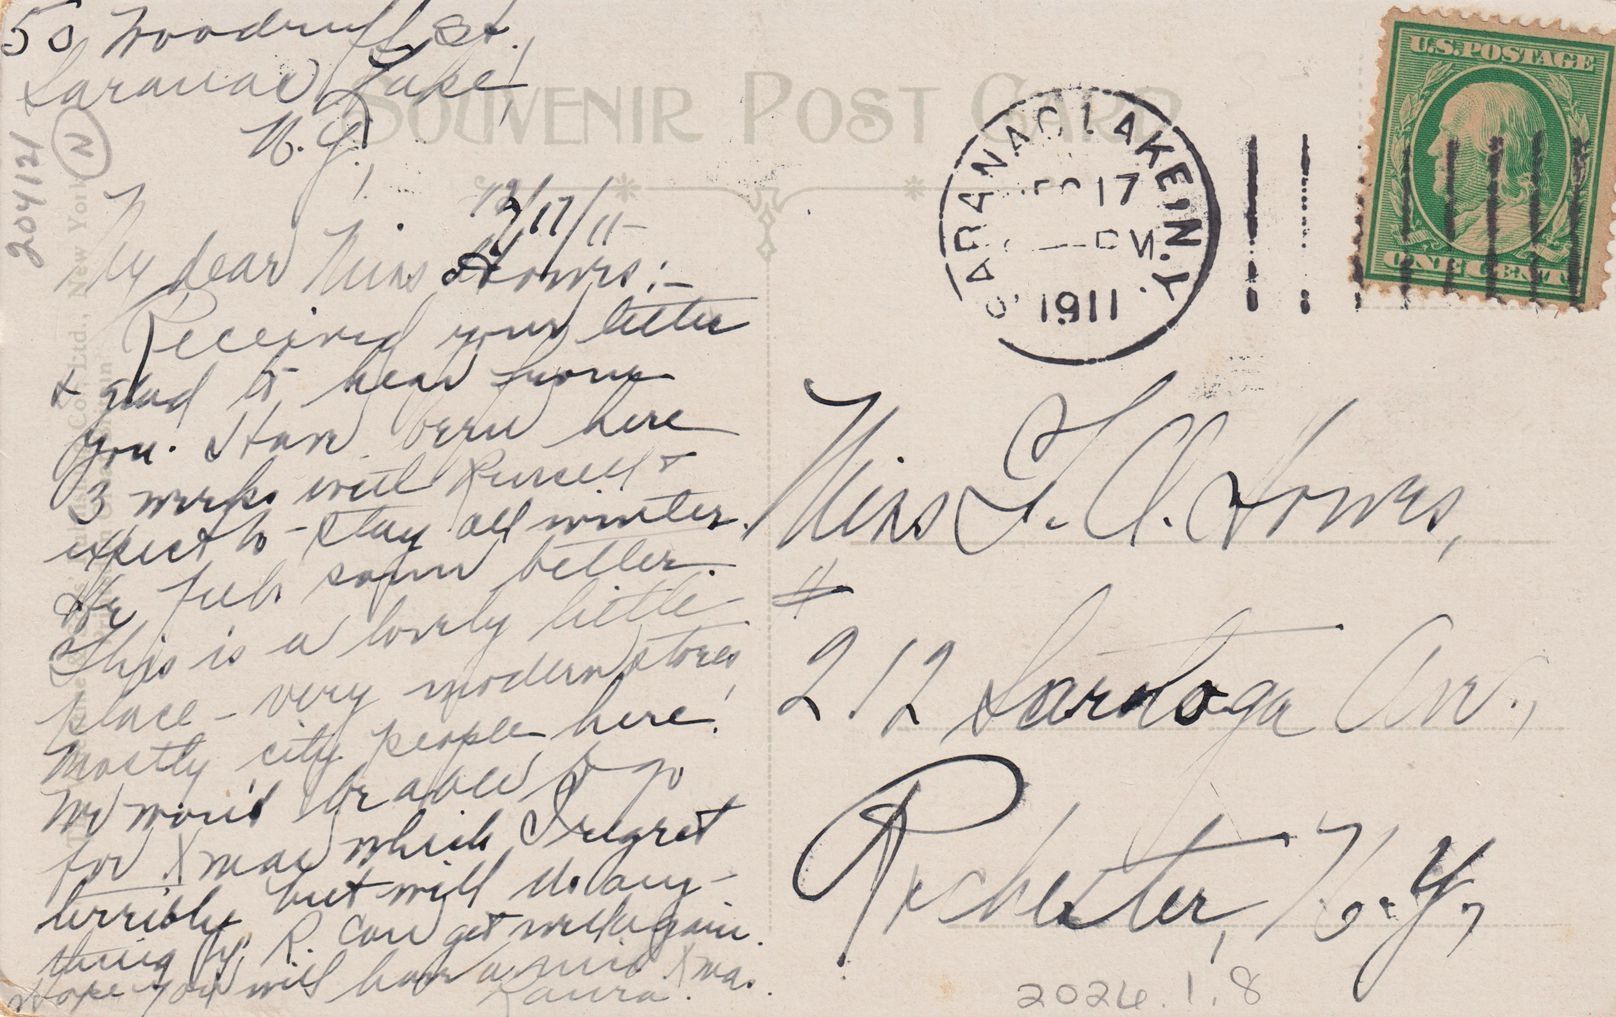 50 Woodruff St.,
Saranac Lake,
N.Y.,
204121
N
SOUVENIR POST CARD
12/17/11-
My dear Miss Howes:-
Received your letter
& glad to hear from
you. Have been here
3 weeks with Russell &
expect to stay all winter.
He feels some better.
This is a lovely little
place - very modern stores,
mostly city people here.
We won't be able to go
for Xmas which I regret
terribly, but will do any-
thing if R. can get well again.
Hope you will have a nice Xmas.
Laura.
SARANAC LAKE, N.Y.
17
PM
1911
U.S. POSTAGE
ONE CENT
Miss F. A. Howes,
#
212 Saratoga Av.,
Rochester, N.Y.,
2024.1.8
Co., Ltd., New York